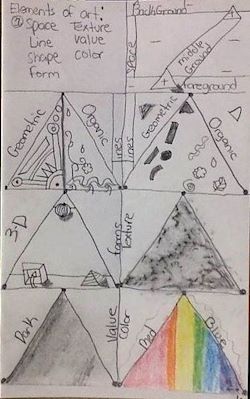 Elements of art:
⑦ Space Texture
Line value
shape color
form
BackGround
Space
middle
Ground
foreground
Geometric
Organic
Lines
Lines
Geometric
Organic
3-D
forms
Texture
Dark
Value
Color
Red
Blue